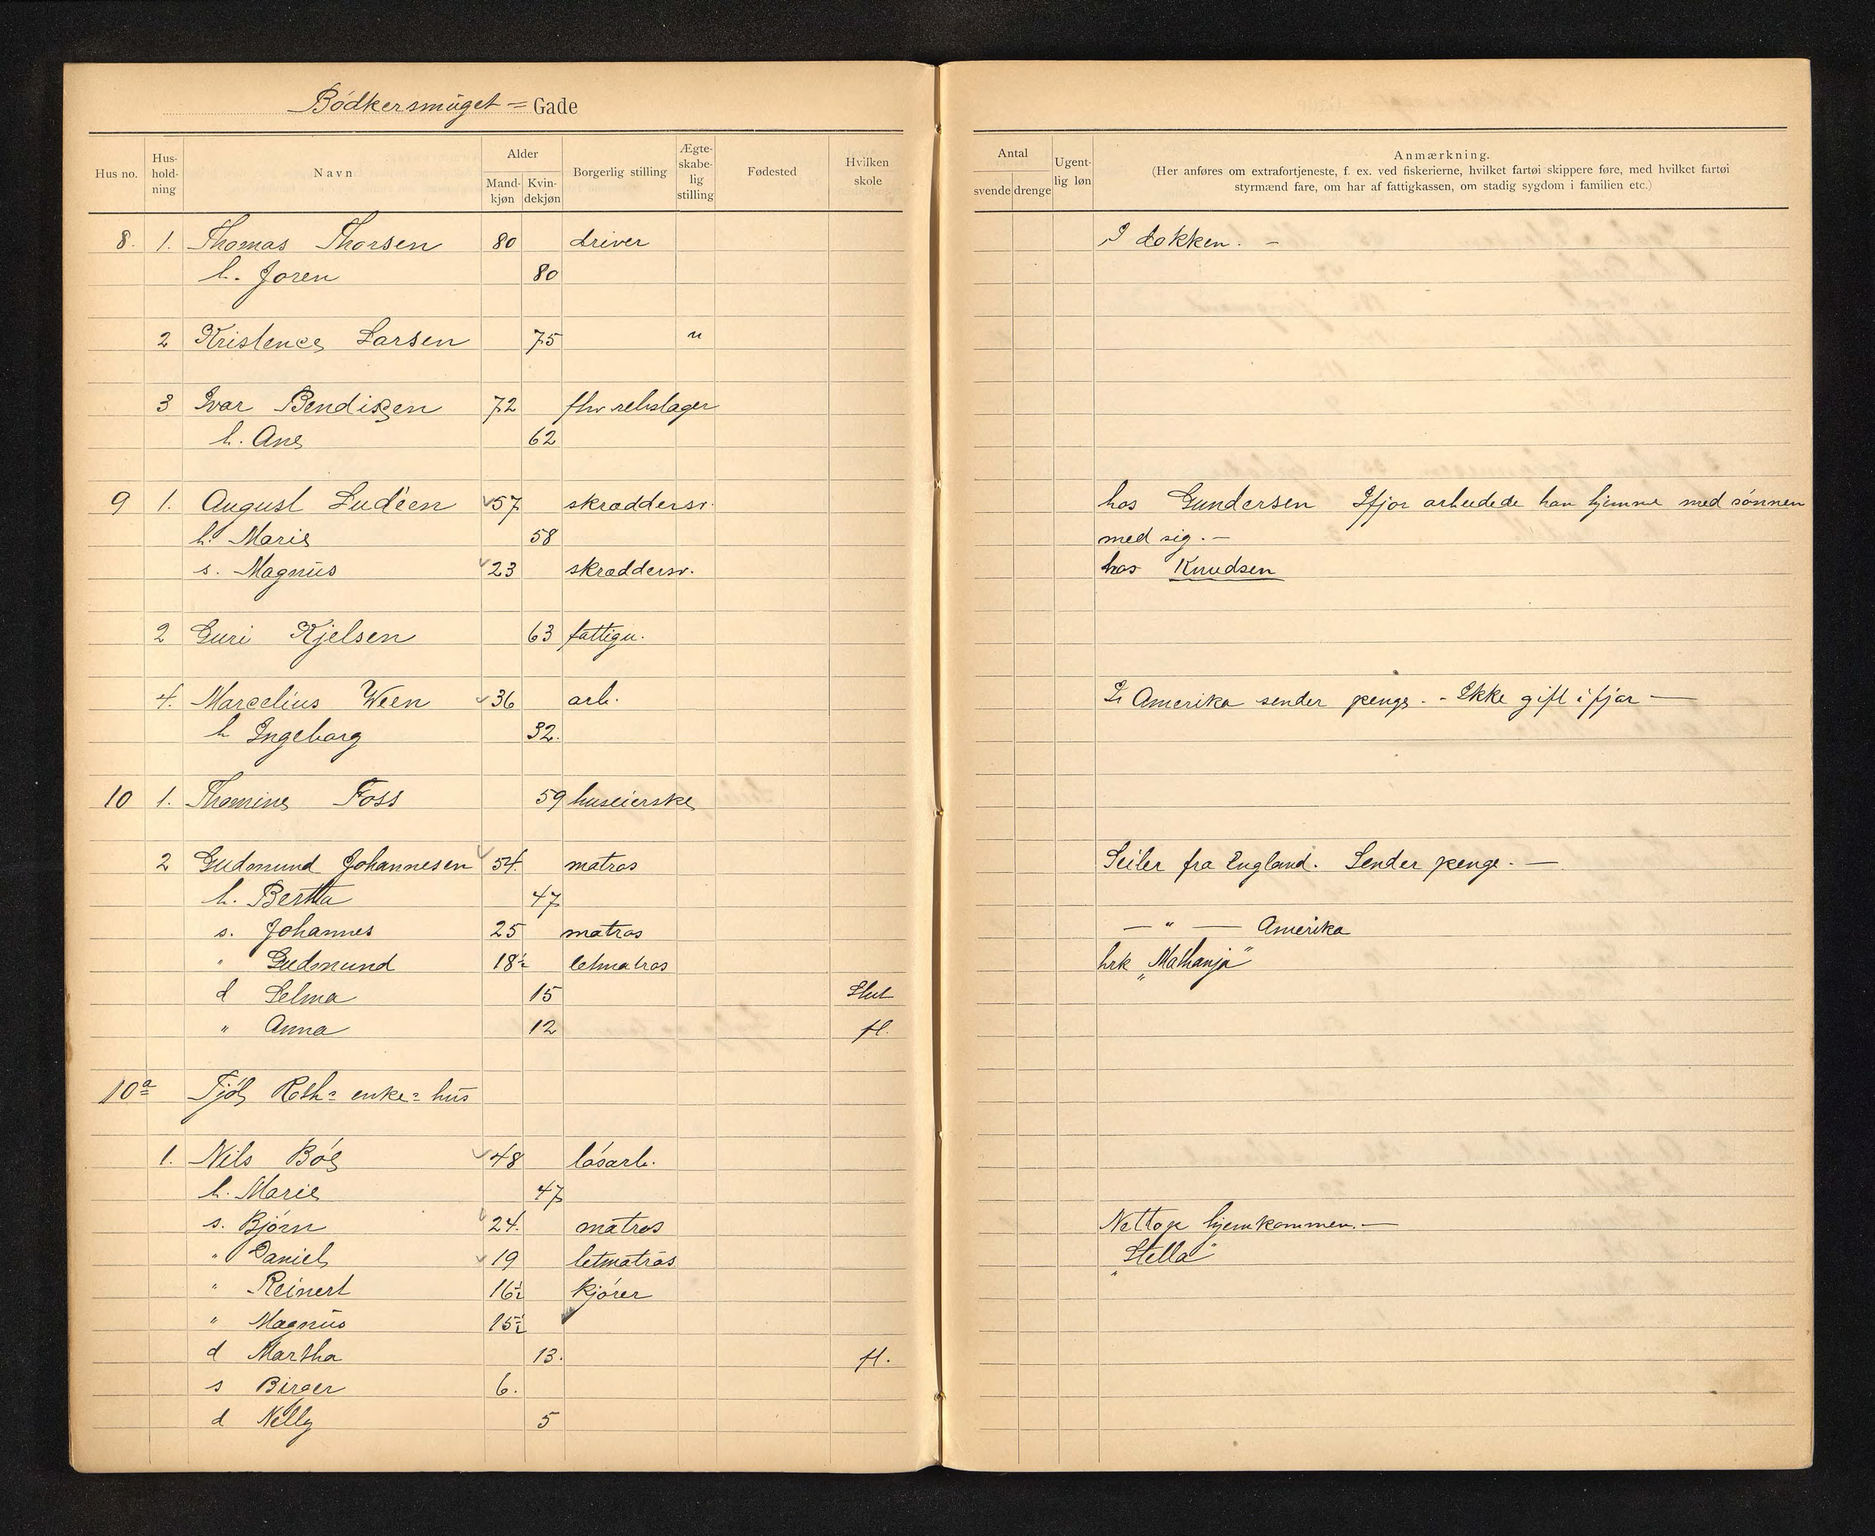 Bödkersmuget = Gade
Hus no. Hus-hold-ning Navn Alder Mand-kjøn Kvin-dekjøn Borgerlig stilling Ægte-skabe-lig stilling Fødested Hvilken skole
Antal svende drenge Ugent-lig løn Anmærkning.
(Her anføres om extrafortjeneste, f. ex. ved fiskerierne, hvilket fartøi skippere føre, med hvilket fartøi
styrmænd fare, om har af fattigkassen, om stadig sygdom i familien etc.)
8. 1. Thomas Thorsen 80 driver I dokken. –
h. Joren 80
2 Kristence Larsen 75 "
3 Ivar Bendixen 72 fhv rebslager
h. Ane 62
9 1. August Ludéen 57 skræddersv. hos Gundersen Ifjor arbeidede han hjemme med sønnen
h. Marie 58 med sig. –
s. Magnus 23 skræddersv. hos Knudsen
2 Guri Kjelsen 63 fattigu.
4. Marcelius Ween 36 arb. I Amerika sender penge. – Ikke gift i fjor –
h Ingeborg 32.
10 1. Thomine Foss 59 huseierske
2 Gudmund Johannesen 54. matros Seiler fra England. Sender penge. –
h. Bertha 47
s. Johannes 25 matros — " — Amerika
" Gudmund 18½ letmatros brk "Mathanja"
d Selma 15 Slut
" Anna 12 fl.
10a Tjös Roth = enke = hus
1. Nils Böe 48 lösarb.
h. Marie 47
s. Björn 24. matros Nettop hjemkommen. –
" Daniel 19 letmatros "Stella"
" Reinert 16½ kjörer
" Magnus 15½
d Martha 13. fl.
s Birger 6.
d Nelly 5